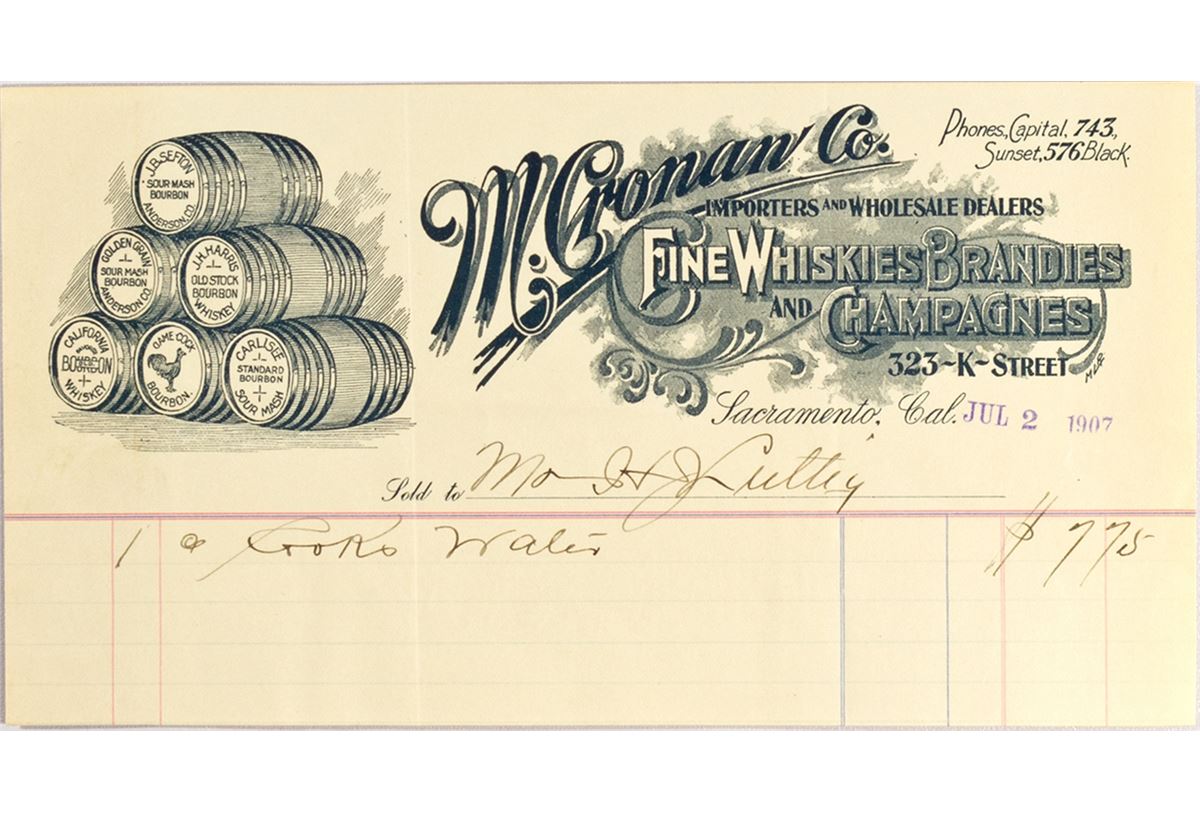 M. Cronan Co.
Phones, Capital, 743,
Sunset, 576 Black.
IMPORTERS AND WHOLESALE DEALERS
FINE WHISKIES BRANDIES
AND CHAMPAGNES
323~K~STREET
Sacramento, Cal. JUL 2 1907
J.B. SEFTON
SOUR MASH
BOURBON
ANDERSON CO.
GOLDEN GRAIN
SOUR MASH
BOURBON
ANDERSON CO.
J.H. HARRIS
OLD STOCK
BOURBON
WHISKEY
CALIFORNIA
BOURBON
WHISKEY
GAME COCK
BOURBON.
CARLISLE
STANDARD
BOURBON
SOUR MASH
Sold to Mr H J Luttig
1 c Cooks Water $ 7 75